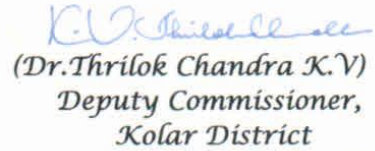 K.V. Thrilok Chandra
(Dr.Thrilok Chandra K.V)
Deputy Commissioner,
Kolar District